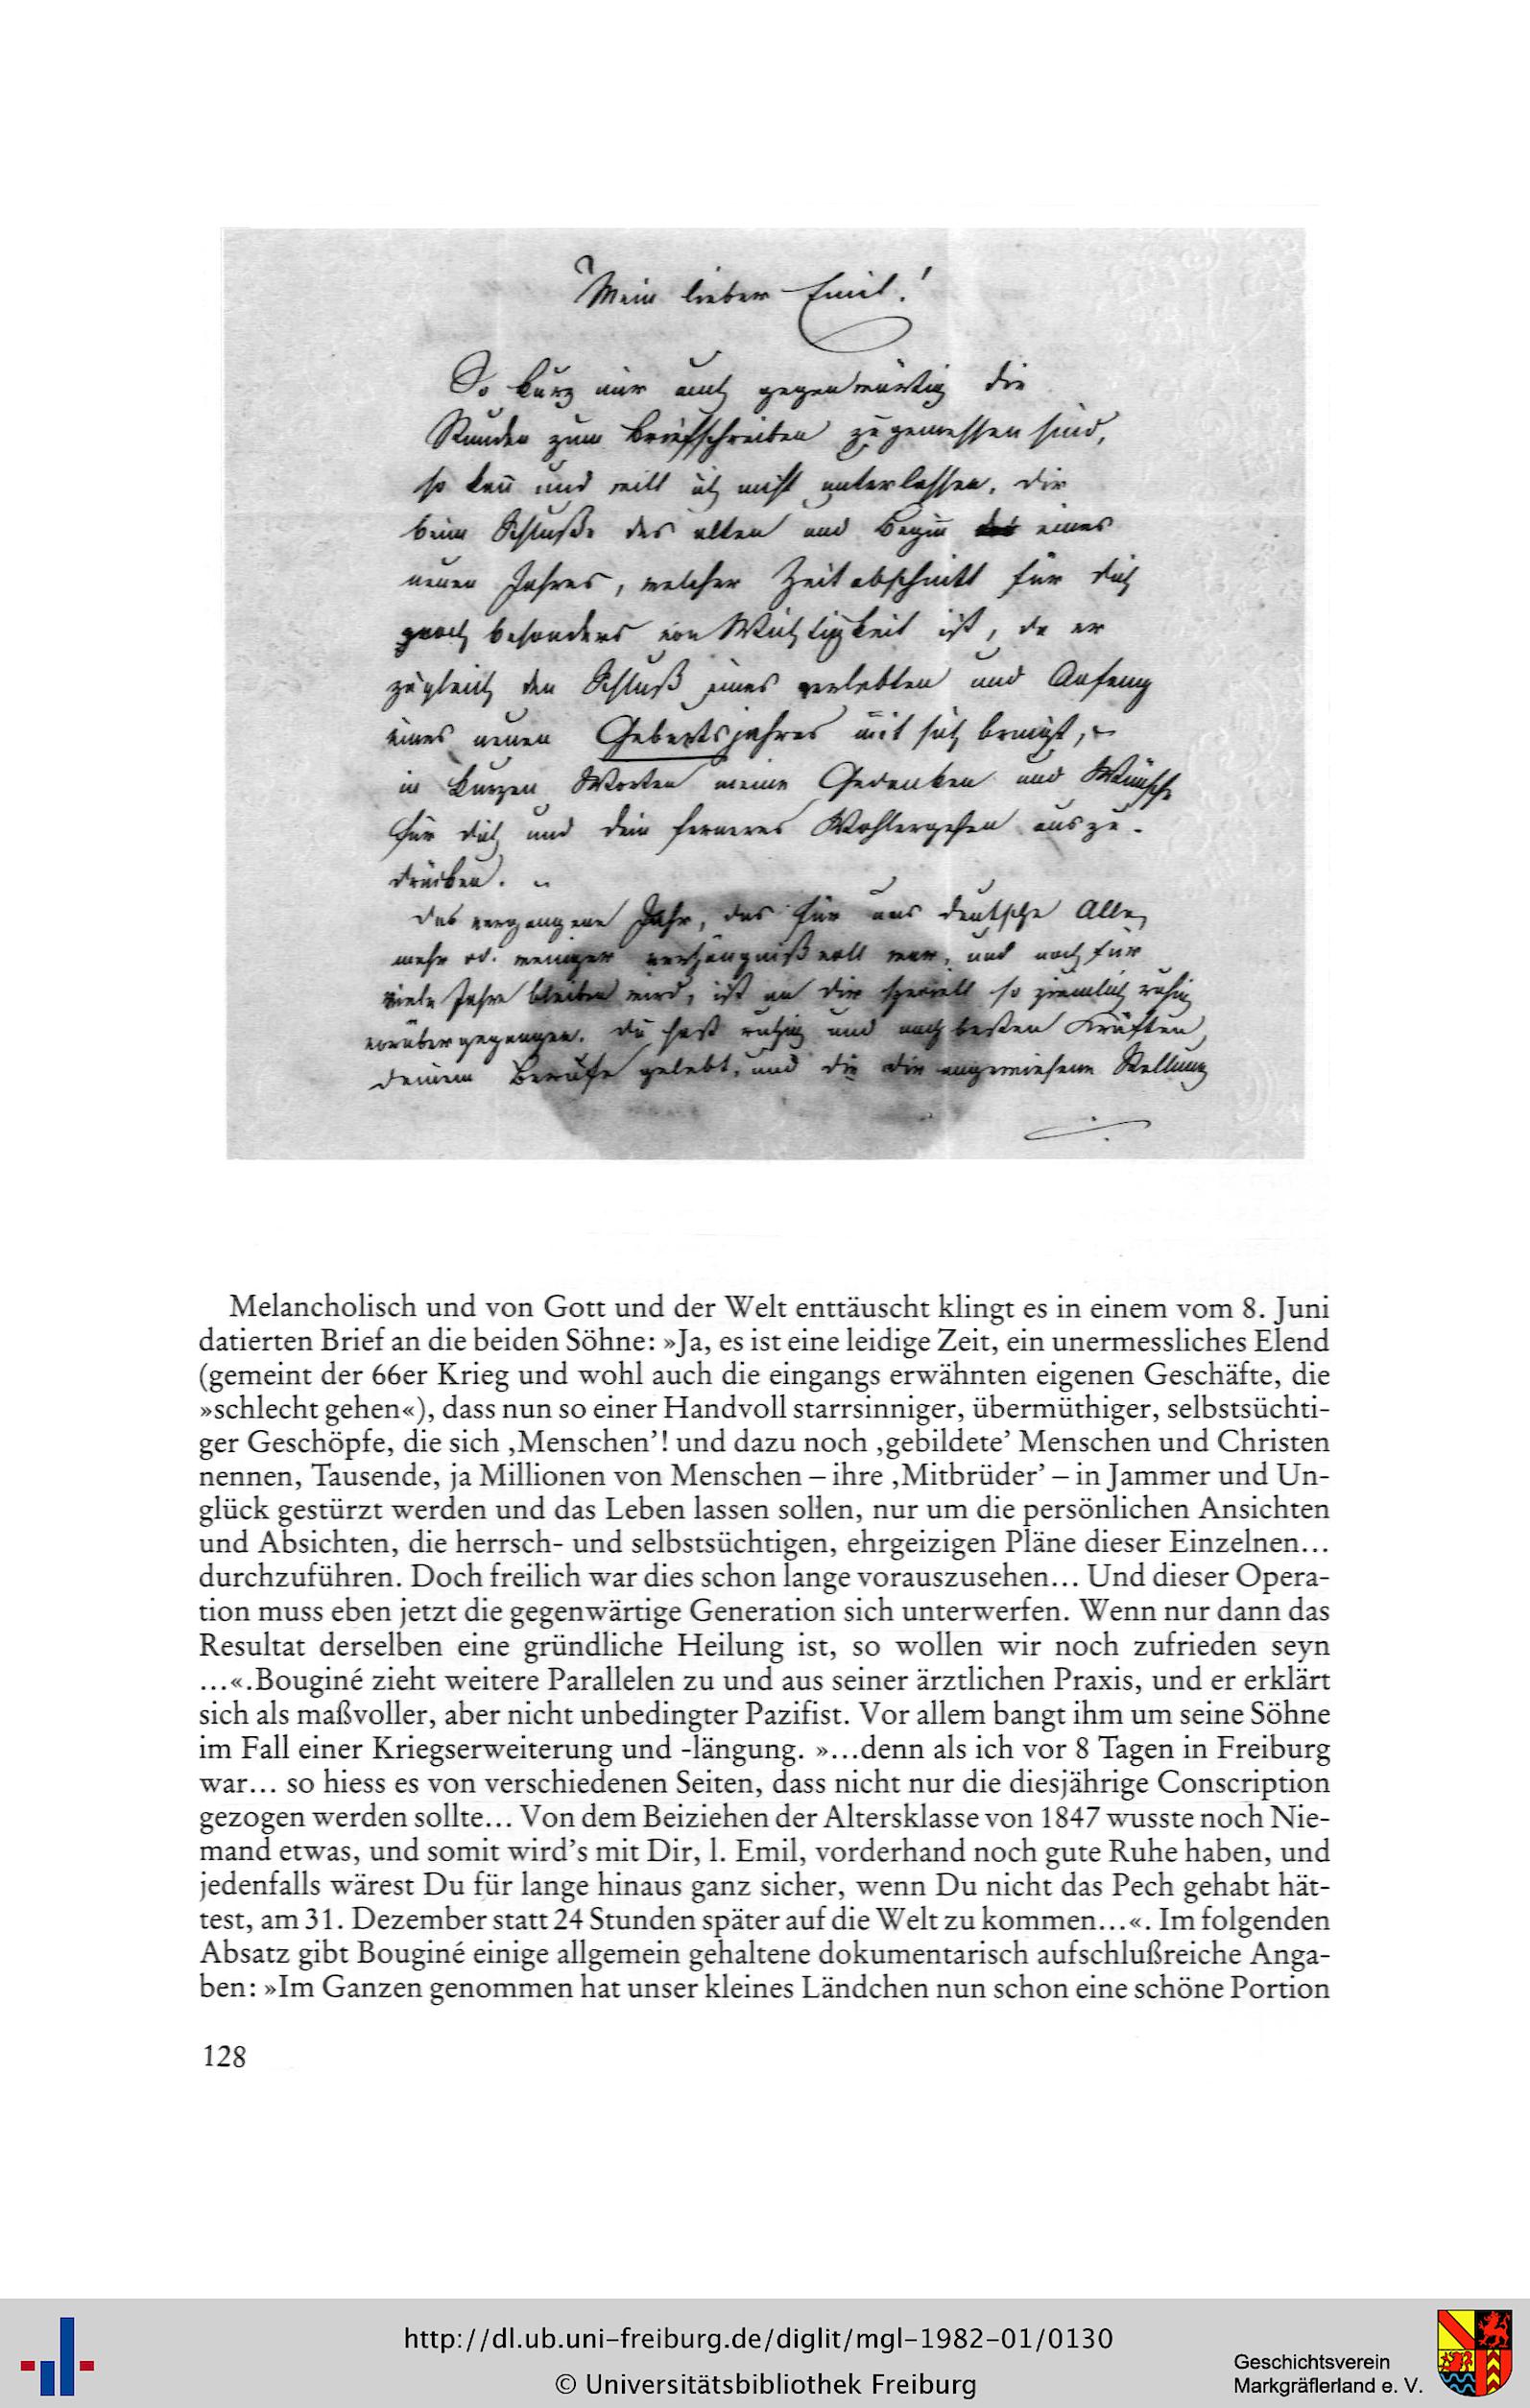 Mein lieber Emil!
So kurz mir auch gegenwärtig die
Stunden zum Briefschreiben zugemessen sind,
so kan̄ und will ich nicht unterlassen, dir
beim Schluße des alten und Begin̄ eines
neuen Jahres, welcher Zeitabschnitt für dich
noch besonders von Wichtigkeit ist, da er
zugleich den Schluß eines verlebten und Anfang
eines neuen Geburtsjahres mit sich bringt,
in kurzen Worten meine Gedanken und Wünsche
für dich und dein ferneres Wohlergehen auszu-
drücken.
Das vergangene Jahr, das für uns deutsche Alle,
mehr od. weniger verhängnißvoll war, und noch für
viele Jahre bleiben wird, ist an dir speciell so ziemlich ruhig
vorübergegangen. Du hast ruhig und nach besten Kräften,
deinem Berufe gelebt, und die dir angewiesene Stellung
Melancholisch und von Gott und der Welt enttäuscht klingt es in einem vom 8. Juni
datierten Brief an die beiden Söhne: »Ja, es ist eine leidige Zeit, ein unermessliches Elend
(gemeint der 66er Krieg und wohl auch die eingangs erwähnten eigenen Geschäfte, die
»schlecht gehen«), dass nun so einer Handvoll starrsinniger, übermüthiger, selbstsüchti-
ger Geschöpfe, die sich ‚Menschen’! und dazu noch ‚gebildete’ Menschen und Christen
nennen, Tausende, ja Millionen von Menschen – ihre ‚Mitbrüder’ – in Jammer und Un-
glück gestürzt werden und das Leben lassen sollen, nur um die persönlichen Ansichten
und Absichten, die herrsch- und selbstsüchtigen, ehrgeizigen Pläne dieser Einzelnen...
durchzuführen. Doch freilich war dies schon lange vorauszusehen... Und dieser Opera-
tion muss eben jetzt die gegenwärtige Generation sich unterwerfen. Wenn nur dann das
Resultat derselben eine gründliche Heilung ist, so wollen wir noch zufrieden seyn
...«.Bouginé zieht weitere Parallelen zu und aus seiner ärztlichen Praxis, und er erklärt
sich als maßvoller, aber nicht unbedingter Pazifist. Vor allem bangt ihm um seine Söhne
im Fall einer Kriegserweiterung und -längung. »...denn als ich vor 8 Tagen in Freiburg
war... so hiess es von verschiedenen Seiten, dass nicht nur die diesjährige Conscription
gezogen werden sollte... Von dem Beiziehen der Altersklasse von 1847 wusste noch Nie-
mand etwas, und somit wird’s mit Dir, l. Emil, vorderhand noch gute Ruhe haben, und
jedenfalls wärest Du für lange hinaus ganz sicher, wenn Du nicht das Pech gehabt hät-
test, am 31. Dezember statt 24 Stunden später auf die Welt zu kommen...«. Im folgenden
Absatz gibt Bouginé einige allgemein gehaltene dokumentarisch aufschlußreiche Anga-
ben: »Im Ganzen genommen hat unser kleines Ländchen nun schon eine schöne Portion
128
http://dl.ub.uni-freiburg.de/diglit/mgl-1982-01/0130
© Universitätsbibliothek Freiburg
Geschichtsverein
Markgräflerland e. V.